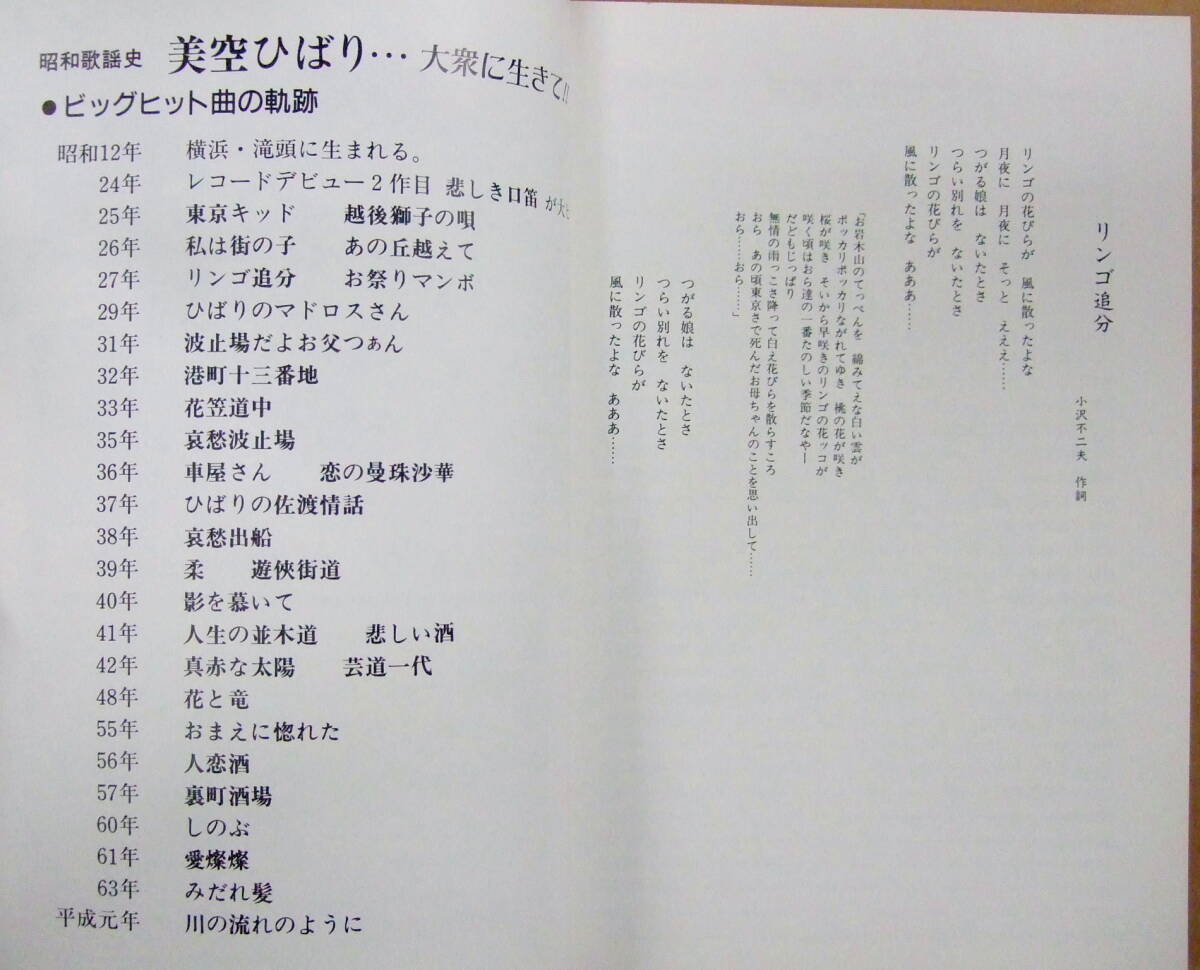 昭和歌謡史 美空ひばり… 大衆に生きて!!
●ビッグヒット曲の軌跡
昭和12年 横浜・滝頭に生まれる。
24年 レコードデビュー2作目 悲しき口笛 が大
25年 東京キッド 越後獅子の唄
26年 私は街の子 あの丘越えて
27年 リンゴ追分 お祭りマンボ
29年 ひばりのマドロスさん
31年 波止場だよお父つぁん
32年 港町十三番地
33年 花笠道中
35年 哀愁波止場
36年 車屋さん 恋の曼珠沙華
37年 ひばりの佐渡情話
38年 哀愁出船
39年 柔 遊俠街道
40年 影を慕いて
41年 人生の並木道 悲しい酒
42年 真赤な太陽 芸道一代
48年 花と竜
55年 おまえに惚れた
56年 人恋酒
57年 裏町酒場
60年 しのぶ
61年 愛燦燦
63年 みだれ髪
平成元年 川の流れのように
リンゴ追分
小沢不二夫 作詞
リンゴの花びらが 風に散ったよな
月夜に 月夜に そっと えええ……
つがる娘は ないたとさ
つらい別れを ないたとさ
リンゴの花びらが
風に散ったよな あああ……
「お岩木山のてっぺんを 綿みてえな白い雲が
ポッカリポッカリながれてゆき 桃の花が咲き
桜が咲き そいから早咲きのリンゴの花ッコが
咲く頃はおら達の一番たのしい季節だなやー
だどもじっぱり
無情の雨っこさ降って白え花びらを散らすころ
おら あの頃東京さで死んだお母ちゃんのことを思い出して……
おら……おら……」
つがる娘は ないたとさ
つらい別れを ないたとさ
リンゴの花びらが
風に散ったよな あああ……